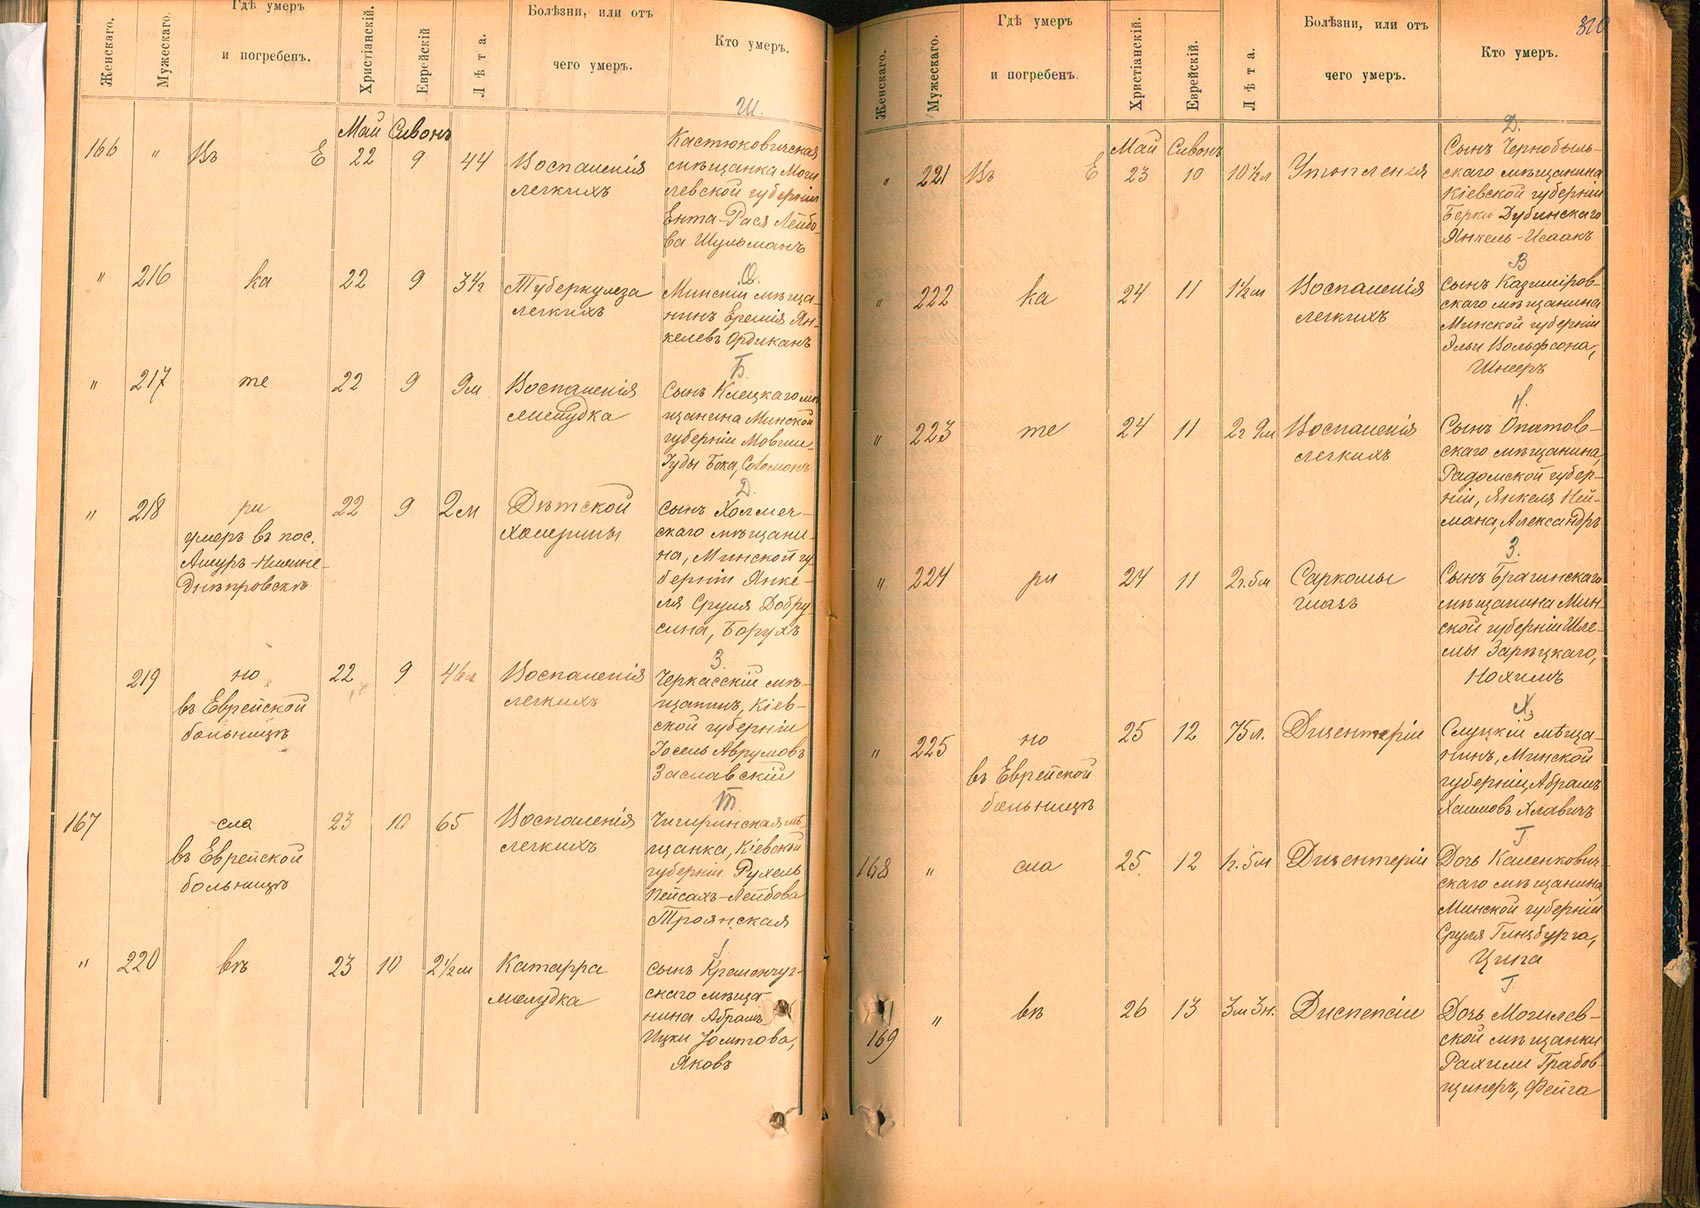 Женскаго.
Мужескаго.
Гдѣ умеръ
и погребенъ.
Христіанскій.
Еврейскій
Лѣта.
Болѣзни, или отъ
чего умеръ.
Кто умеръ.
Ш.
Май Сивонъ
166 " Въ Е 22 9 44 Воспаленія
легкихъ
Кастюковичская
мѣщанка Моги
левской губерніи
Ента-Рася Лейбо-
ва Шульманъ
О.
" 216 ка 22 9 34г Туберкулеза
легкихъ
Минскій мѣща-
нинъ Еремія Ян-
келевъ Ордиканъ
Б.
" 217 те 22 9 9м Воспаленія
желудка
Сынъ Клецкаго мѣ
щанина Минской
губерніи Мовши
Іуды Бока, Соломонъ
Д.
" 218 ри 22 9 2м Дѣтской
холерины
умеръ въ пос.
Амуръ-Нижне-
Днѣпровскъ
сынъ Холмеч-
скаго мѣщани-
на, Минской гу
берніи Янке-
ля Сруля Добру-
сина, Борухъ
З.
219 но 22 9 46л Воспаленія
легкихъ
въ Еврейской
больницѣ
Черкасскій мѣ-
щанинъ, Кіев-
ской губерніи
Іосель Аврумовъ
Заславскій
Т.
167 сла 23 10 65 Воспаленія
легкихъ
въ Еврейской
больницѣ
Чигиринская мѣ-
щанка, Кіевской
губерніи Рухель
Пейсахъ-Лейбова
Троянская
" 220 вѣ 23 10 2½м Катарра
желудка
сынъ Кременчуг-
скаго мѣща-
нина Абрамъ
Ицки Іомтова,
Яковъ
320
Женскаго.
Мужескаго.
Гдѣ умеръ
и погребенъ.
Христіанскій.
Еврейскій.
Лѣта.
Болѣзни, или отъ
чего умеръ.
Кто умеръ.
Д.
Май Сивонъ
" 221 Въ Е 23 10 10½л Утопленія
Сынъ Чернобыль-
скаго мѣщанина
Кіевской губерніи
Берки Дубинскаго
Янкель-Исаакъ
В
" 222 ка 24 11 1½м Воспаленія
легкихъ
сынъ Казимиров-
скаго мѣщанина
Минской губерніи
Эльи Вольфсона,
Шнееръ
Н.
" 223 те 24 11 2г 9м Воспаленія
легкихъ
Сынъ Опатов-
скаго мѣщанина,
Радомской губер-
ніи, Янкеля Ней-
мана, Александръ
З.
" 224 ри 24 11 2г.5м Саркомы
глазъ
Сынъ Брагинскаго
мѣщанина Мин-
ской губерніи Шле-
мы Зарѣцкаго,
Нохимъ
Х
" 225 но 25 12 75л. Дизентеріи
въ Еврейской
больницѣ
Слуцкій мѣща-
нинъ, Минской
губерніи, Абрамъ
Хаимовъ Хлавичъ
Г
168 " сла 25 12 1г.5м Дизентеріи
Дочь Каменкович-
скаго мѣщанина,
Минской губерніи
Сруля Гинзбурга,
Цита
Г
169 " вѣ 26 13 3м 3н. Диспепсіи
Дочь Могилев-
ской мѣщанки
Рахили Грабов-
щинеръ, Фейга